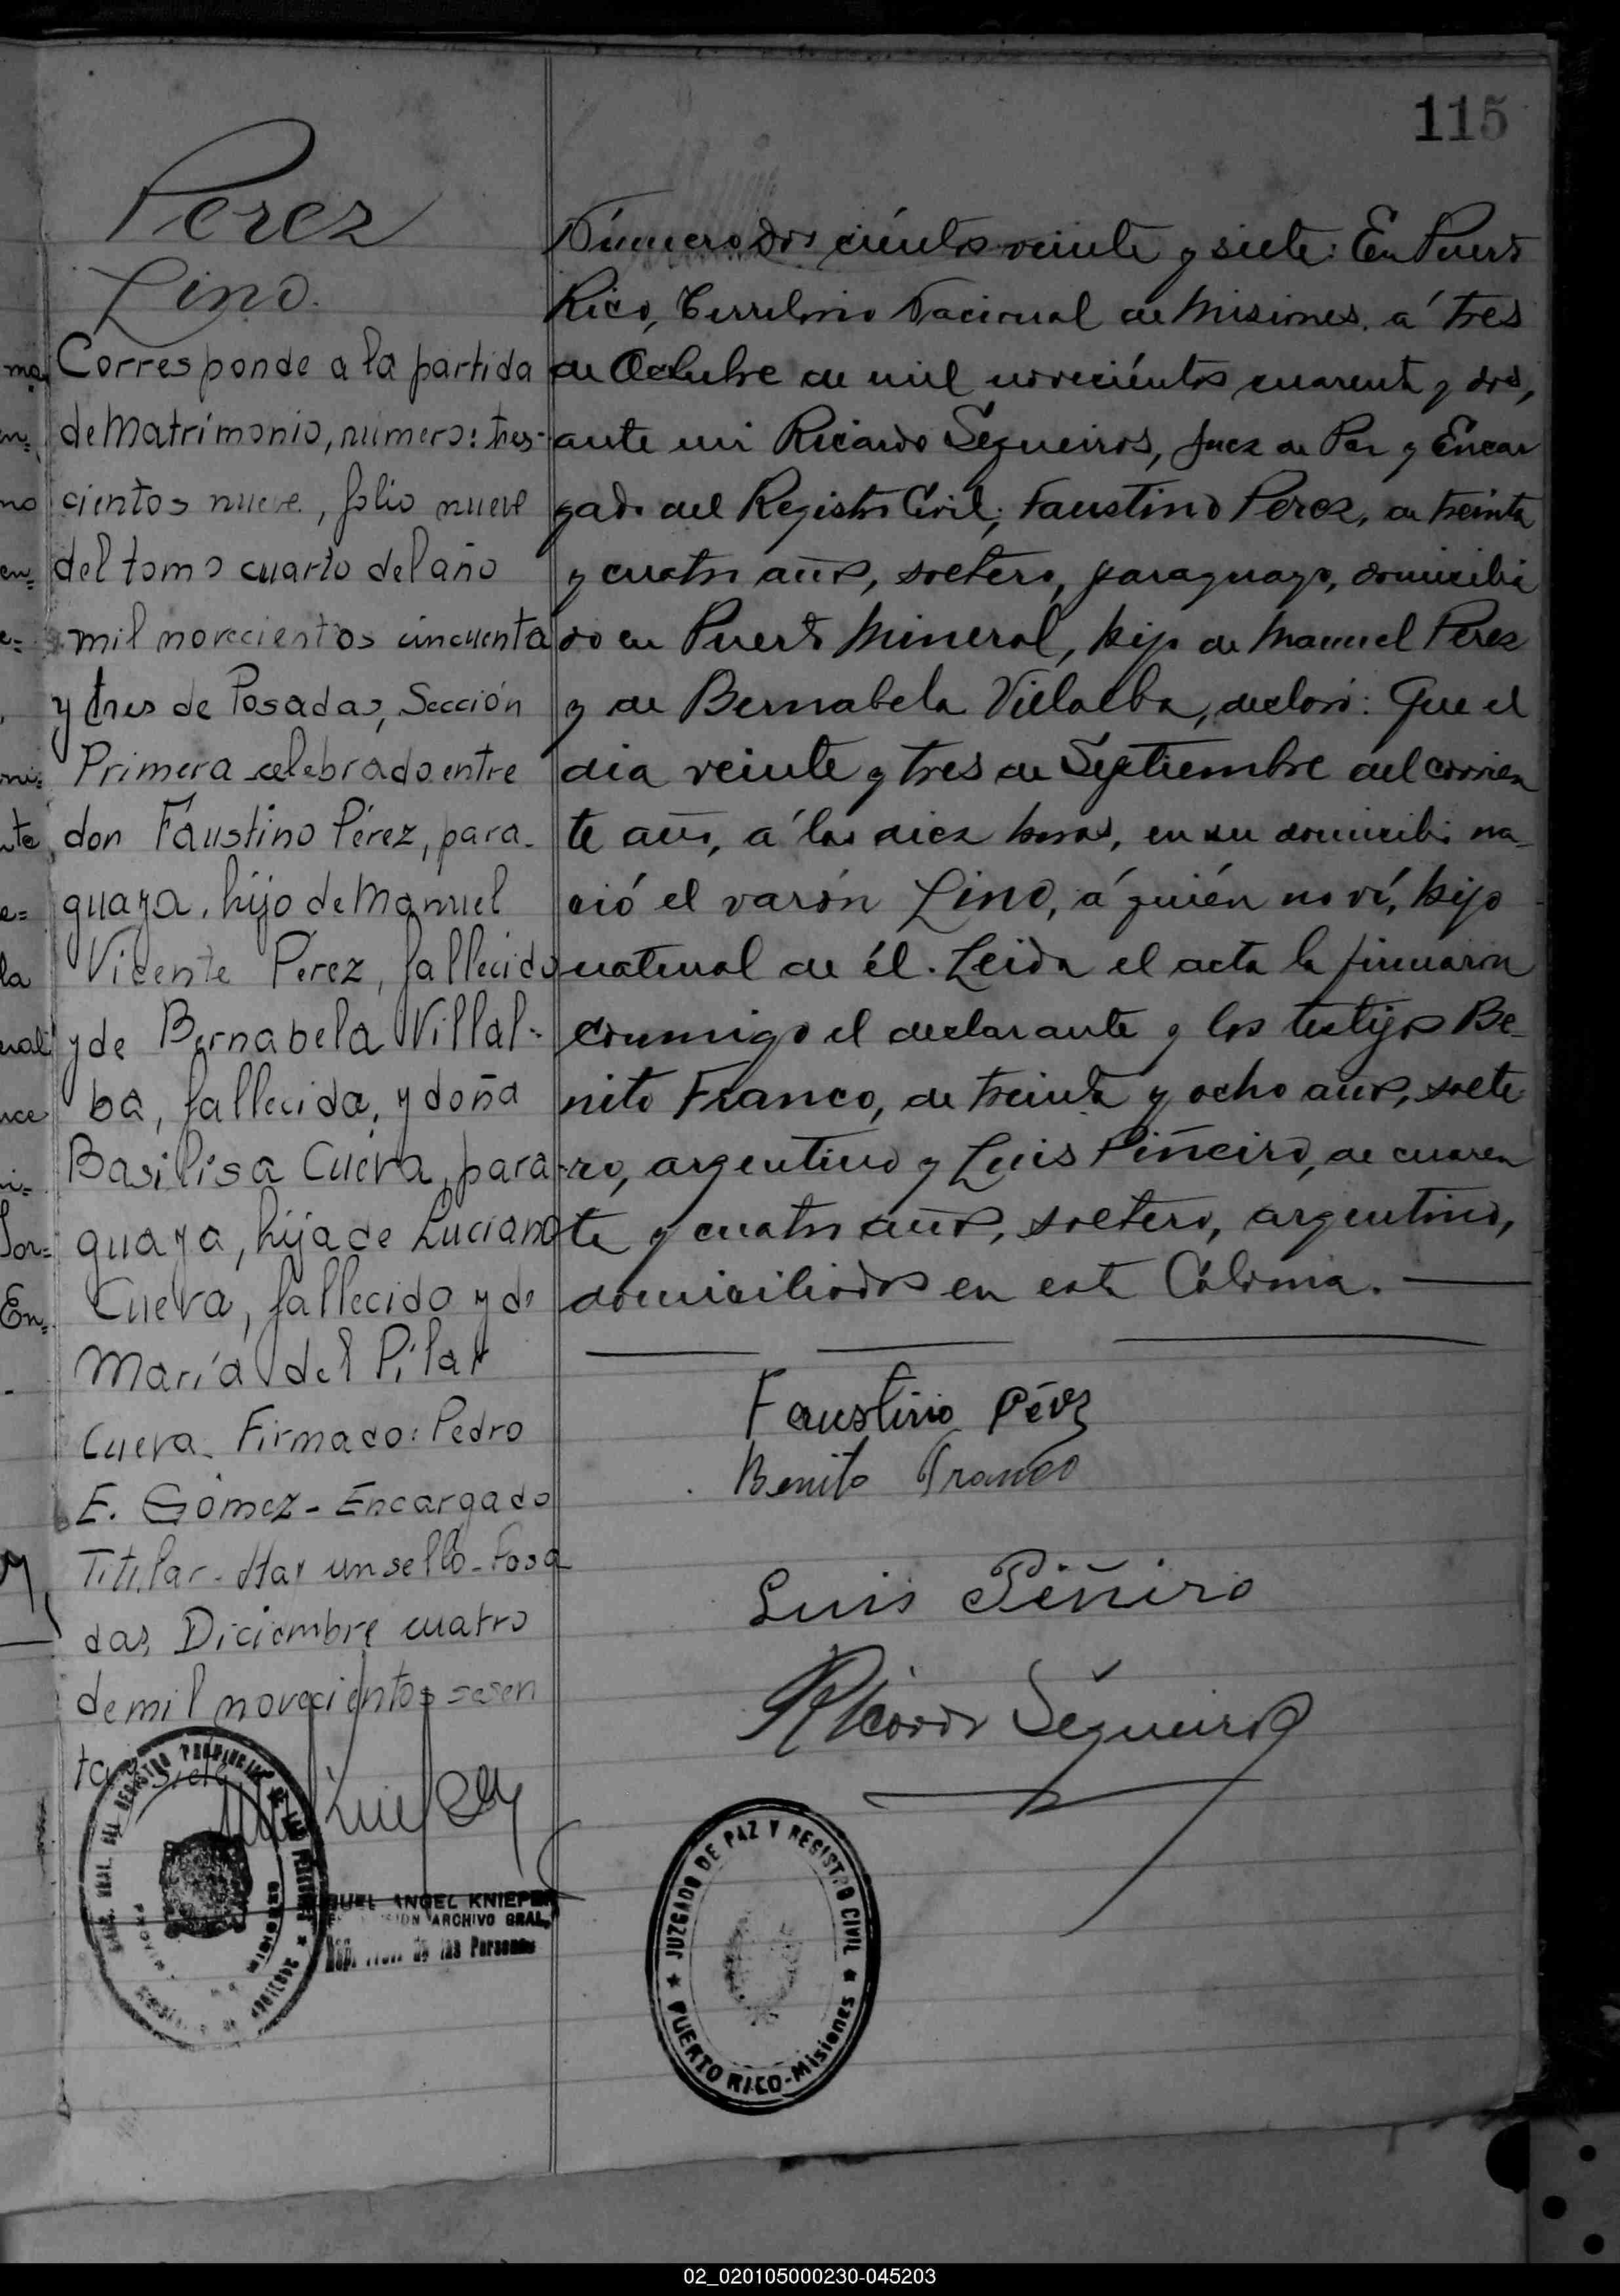 115
Perez
Lino.
Corresponde a la partida
de Matrimonio, número: tres-
cientos nueve, folio nueve
del tomo cuarto del año
mil novecientos cincuenta
y tres de Posadas, Sección
Primera celebrado entre
don Faustino Pérez, para-
guaya, hijo de Manuel
Vicente Pérez, fallecido
y de Bernabela Villal-
ba, fallecida, y doña
Basilisa Cueva, para-
guaya, hija de Luciano
Cueva, fallecido y de
María del Pilar
Cueva. Firmado: Pedro
E. Gómez - Encargado
Titular - Hay un sello - Posa
das, Diciembre cuatro
de mil novecientos sesen
ta y siete
Número dos ciéntos veinte y siete: En Puerto
Rico, Territorio Nacional de Misiones, a´ tres
de Octubre de mil noveciéntos cuarenta y dos,
ante mi Ricardo Segueiros, Juez de Paz y Encar
gado del Registro Civil; Faustino Perez, de treinta
y cuatro años, soltero, paraguayo, domicilia
do en Puerto Mineral, hijo de Manuel Perez
y de Bernabela Villalba, declaró: Que el
dia veinte y tres de Septiembre del corrien
te año, á las diez horas, en su domicilio na-
ció el varón Lino, á quién no ví, hijo
natural de él. Leida el acta la firmaron
conmigo el declarante y los testigos Be-
nito Franco, de treinta y ocho años, solte
ro, argentino y Luis Piñeiro, de cuaren
ta y cuatro años, soltero, argentino,
domiciliados en esta Colonia.
Faustino Pérez
Benito Franco
Luis Piñiro
Ricardo Segueiros
ANGEL KNIEPER
ARCHIVO GRAL.
de las Personas
JUZGADO DE PAZ Y REGISTRO CIVIL
PUERTO RICO - Misiones
02_020105000230-045203